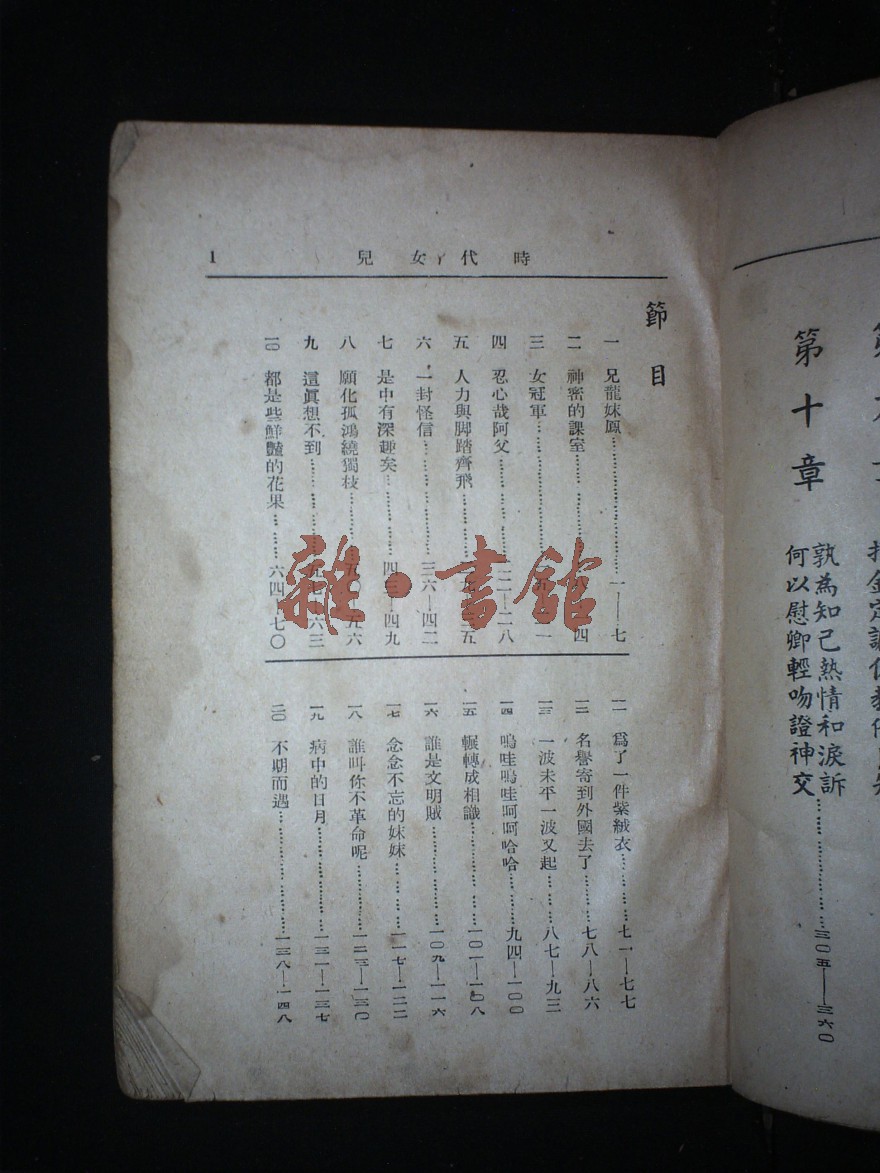 第十章
孰為知己熱情和淚訴
何以慰卿輕吻證神交……三〇五——三六〇
時代女兒 1
節目
一 兄龍妹鳳……一——七
二 神密的課室……
三 女冠軍……
四 忍心哉阿父……二二——二八
五 人力與脚踏齊飛……
六 一封怪信……三六——四二
七 是中有深趣矣……四三——四九
八 願化孤鴻繞獨枝……五〇——五六
九 這眞想不到……五七——六三
一〇 都是些鮮豔的花果……六四——七〇
一一 爲了一件紫絨衣……七一——七七
一二 名譽寄到外國去了……七八——八六
一三 一波未平一波又起……八七——九三
一四 嗚哇嗚哇呵呵哈哈……九四——一〇〇
一五 輾轉成相識……一〇一——一〇八
一六 誰是文明賊……一〇九——一一六
一七 念念不忘的妹妹……一一七——一二二
一八 誰叫你不革命呢……一二三——一三〇
一九 病中的日月……一三一——一三七
二〇 不期而遇……一三八——一四八
雜·書館